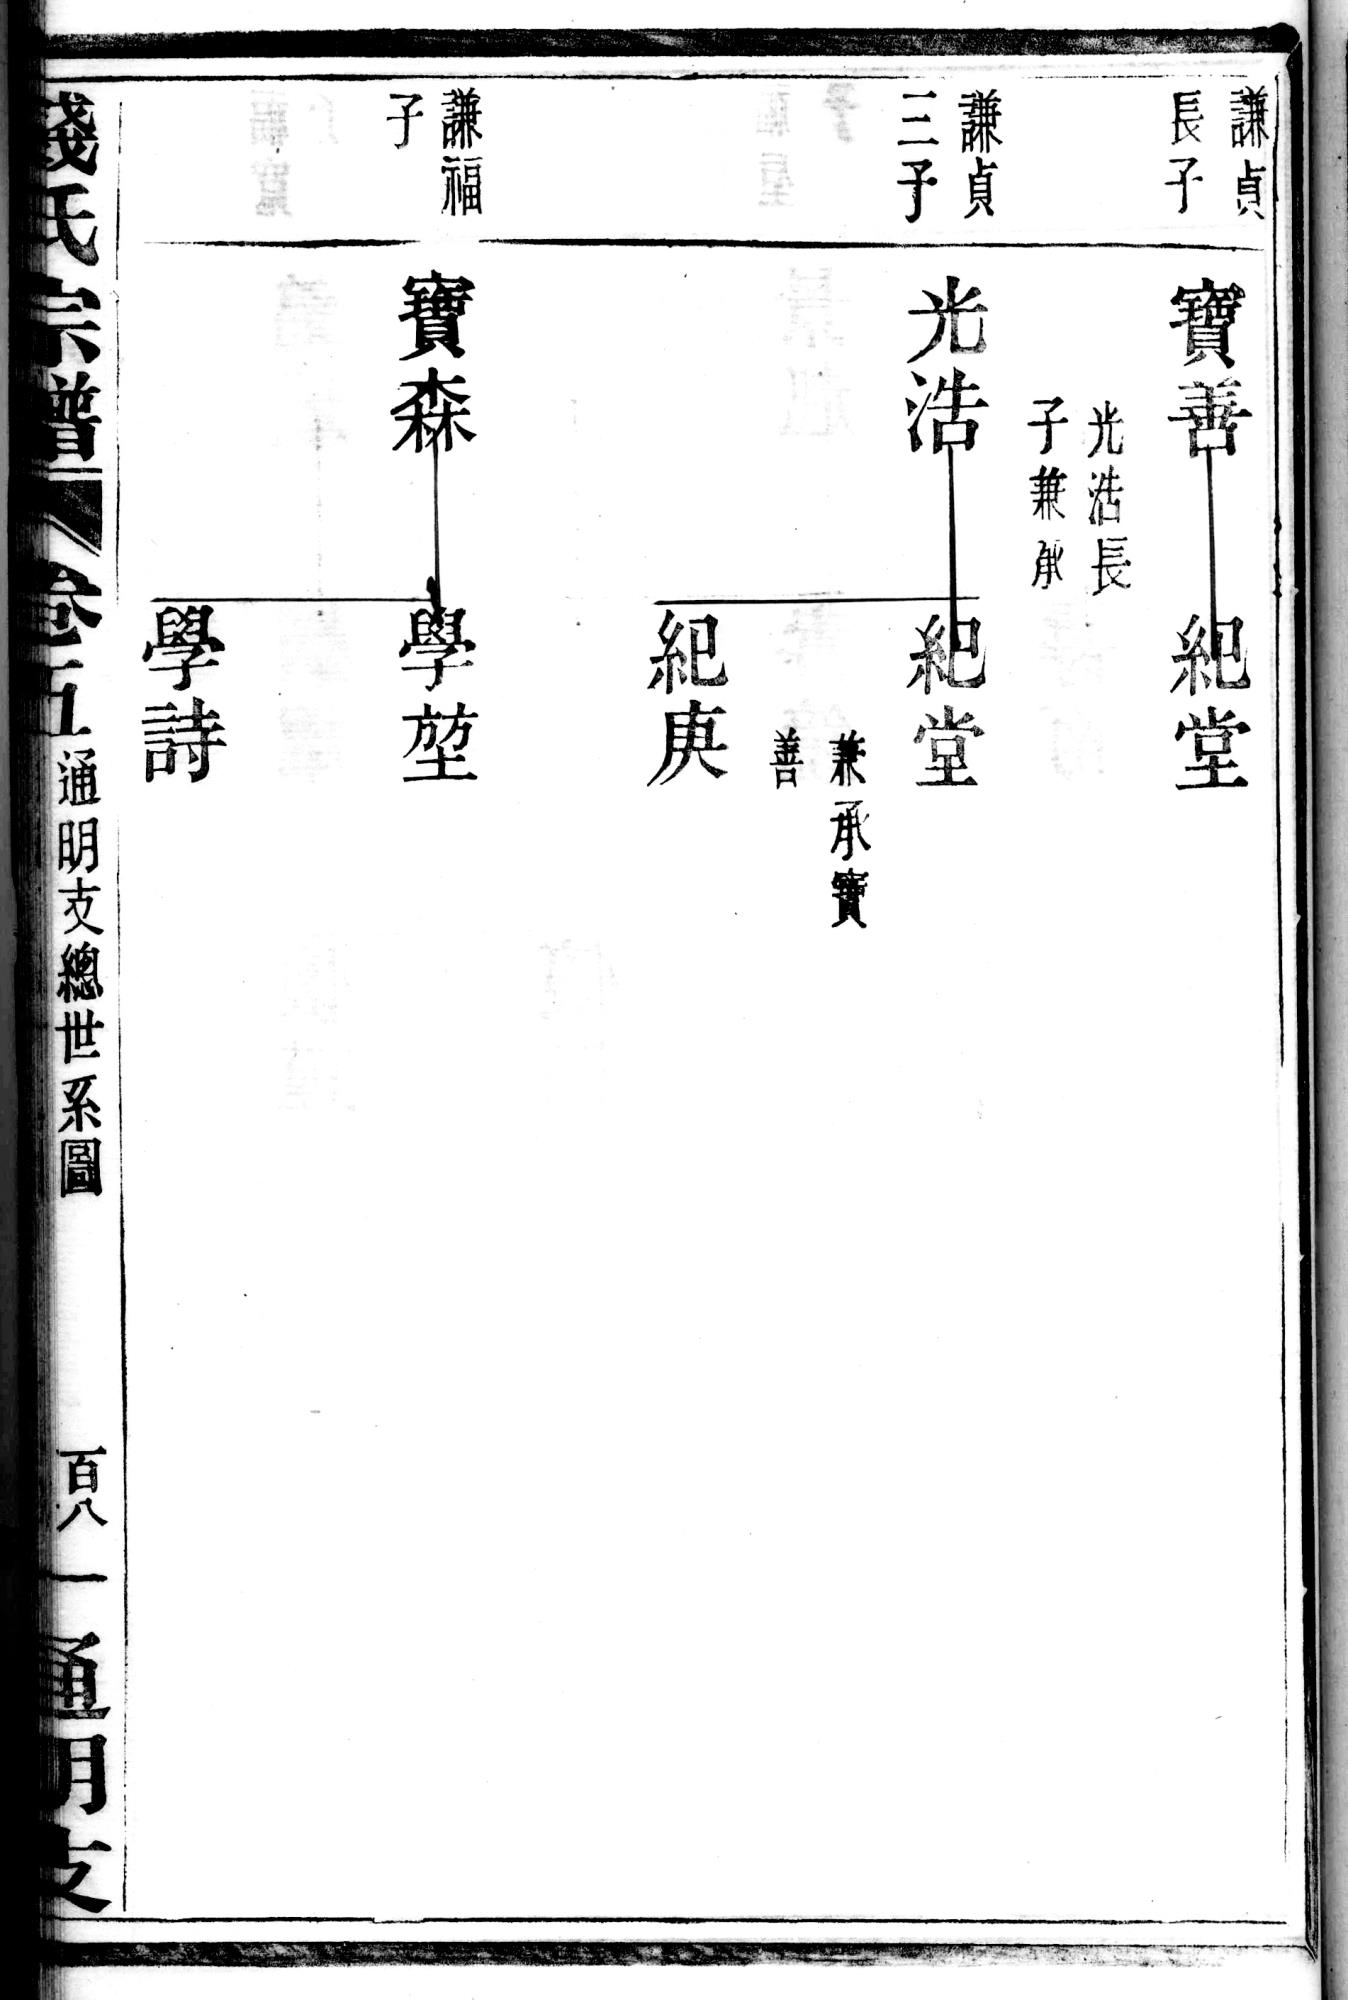 謙貞
長子
寶善
紀堂
光浩長
子兼承
謙貞
三子
光浩
紀堂
兼承寶
善
紀庚
謙福
子
寶森
學堃
學詩
錢氏宗譜
卷五
通明支總世系圖
百八一
通明支